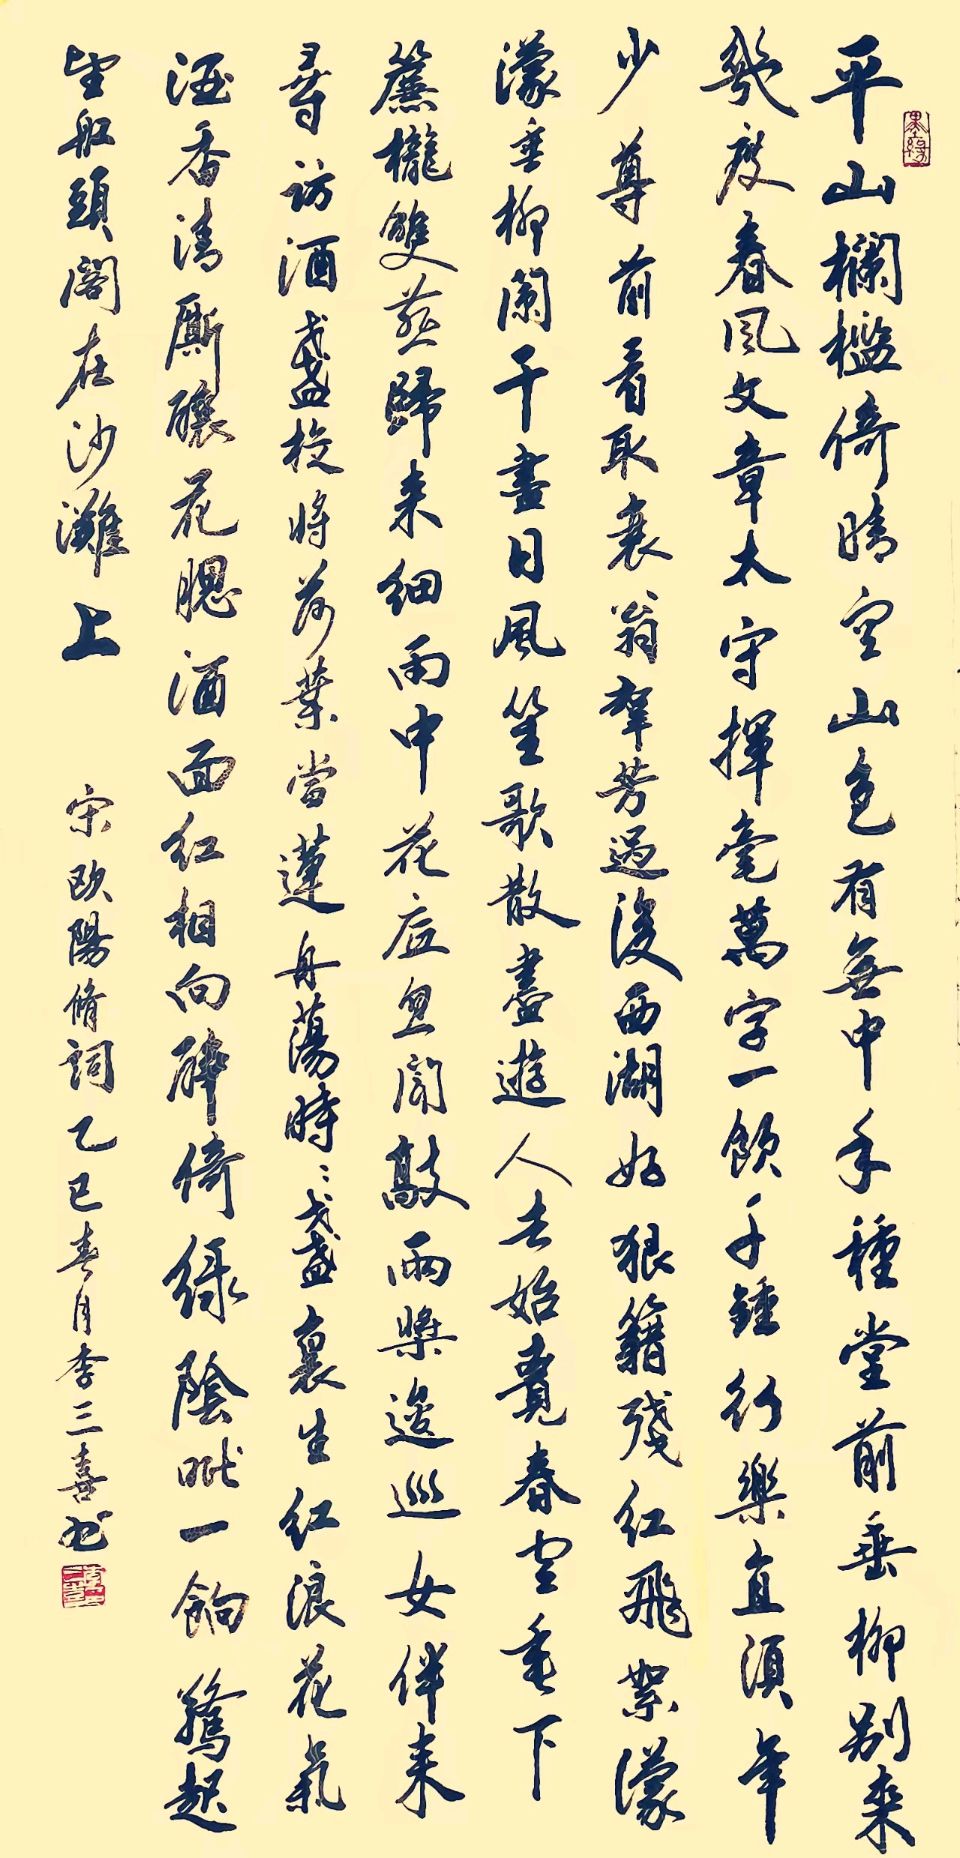 墨緣
平山欄檻倚晴空山色有無中手種堂前垂柳別來
幾度春風文章太守揮毫萬字一飲千鍾行樂直須年
少尊前看取衰翁羣芳過後西湖好狼籍殘紅飛絮濛
濛垂柳闌干盡日風笙歌散盡遊人去始覺春空垂下
簾櫳雙燕歸來細雨中花底忽聞敲兩槳逡巡女伴來
尋訪酒盞旋將荷葉當蓮舟蕩時〻盞裏生紅浪花氣
酒香清廝釀花腮酒面紅相向醉倚綠陰眠一餉驚起
望船頭閣在沙灘上 宋歐陽脩詞乙巳春月李三喜書